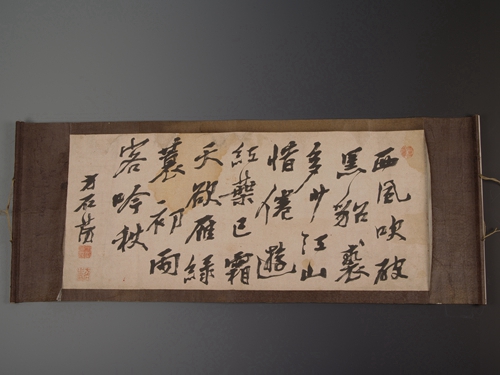 西風吹破
黑貂裘
多少江山
惜倦遊
紅葉已霜
天欲雁綠
蓑初雨
客吟秋
石